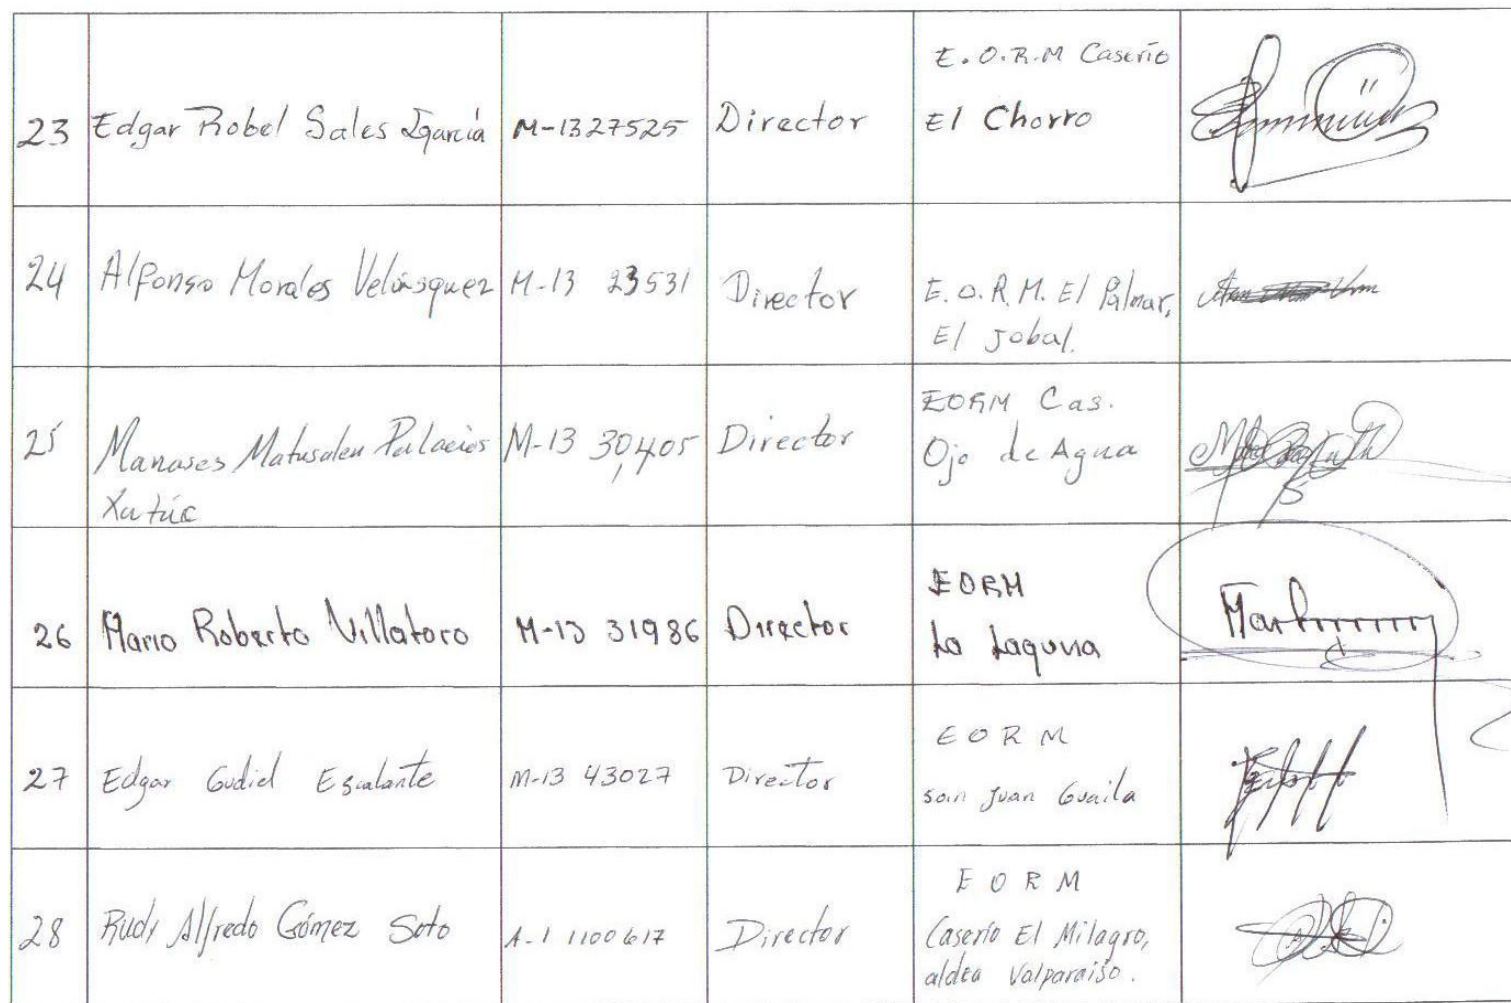 23 Edgar Robel Sales Igarcía M-1327525 Director E.O.R.M Caserío
El Chorro
24 Alfonso Morales Velásquez M-13 23531 Director E.O.R.M. El Palmar,
El Jobal.
25 Manases Matusalen Palacios M-13 30,405 Director EORM Cas.
Ojo de Agua
Xutuc
26 Mario Roberto Villatoro M-13 31986 Director EORM
La Laguna
27 Edgar Gudiel Escalante M-13 43027 Director EORM
san Juan Guaila
28 Rudy Alfredo Gómez Soto A-1 1100617 Director EORM
Caserío El Milagro,
aldea Valparaiso.